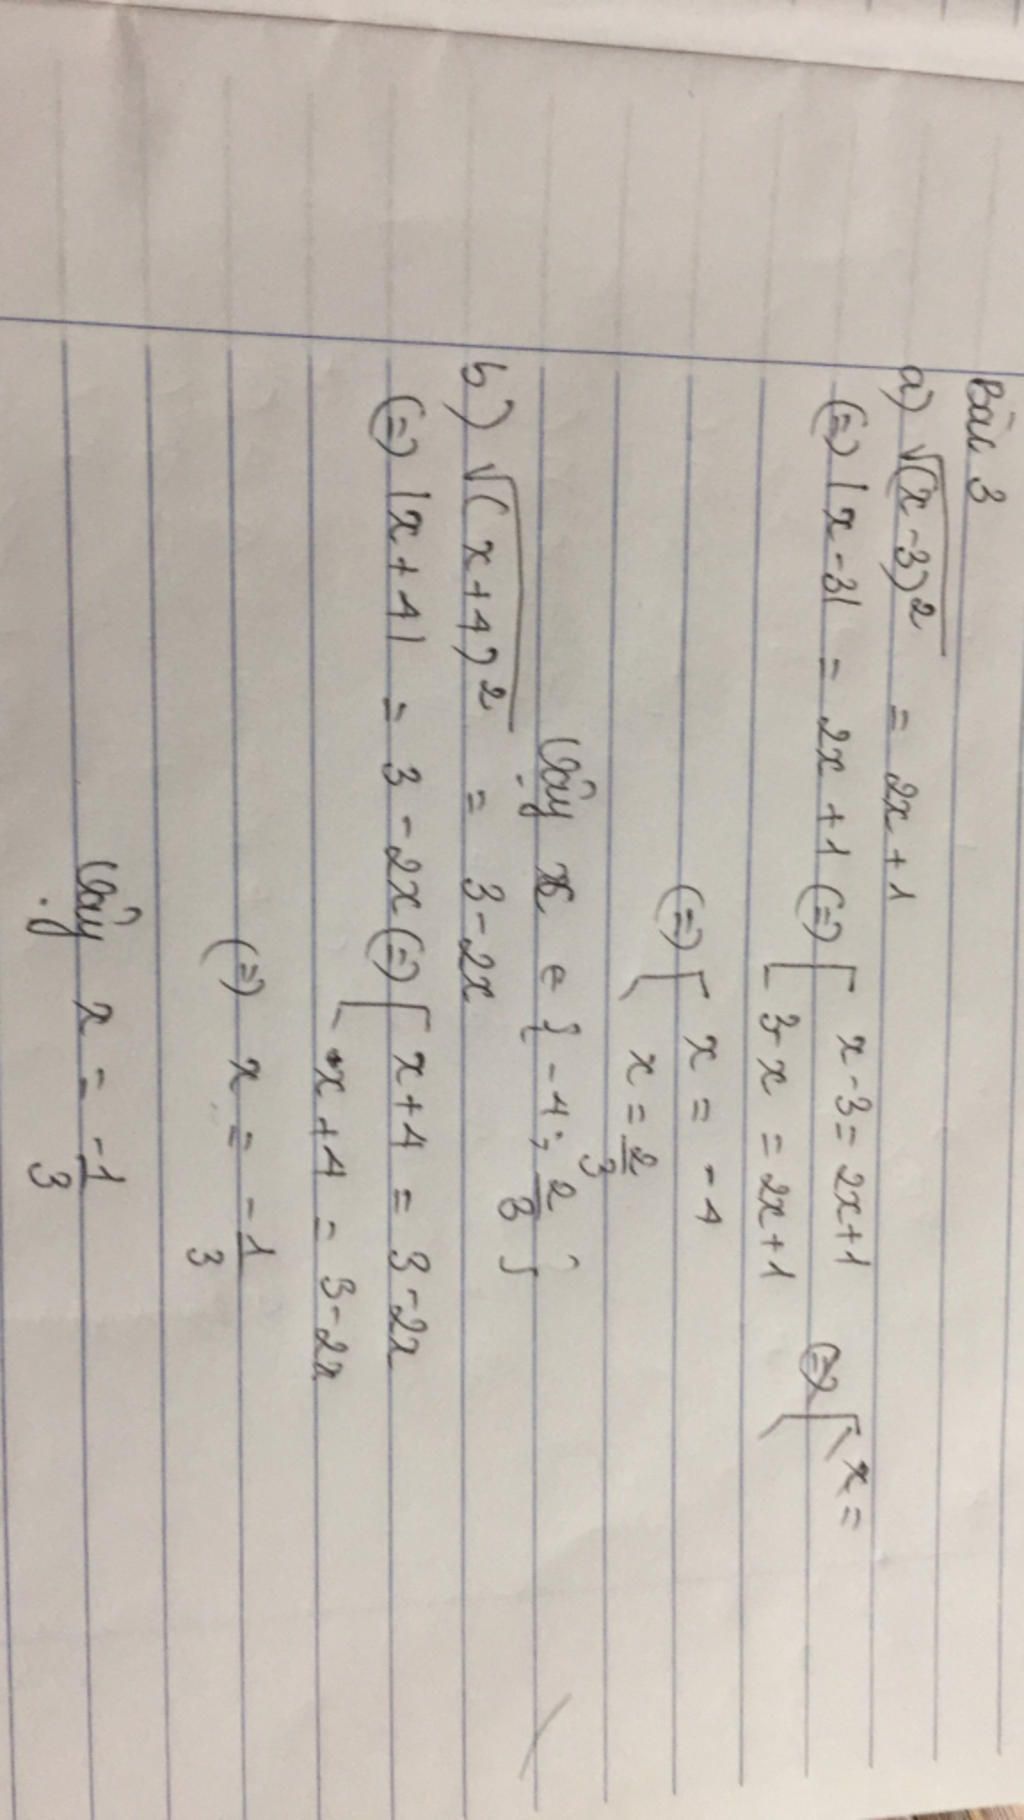 Bài 3
a) √(x-3)² = 2x+1
(=) |x-3| = 2x+1 (=) [ x-3 = 2x+1 (=) [ x =
[ 3-x = 2x+1
(=) [ x = -4
[ x = 2/3
Vậy x e { -4; 2/3 }
b) √(x+4)² = 3-2x
(=) |x+4| = 3-2x (=) [ x+4 = 3-2x
[ x+4 = 3-2x
(=) x = -1/3
Vậy x = -1/3